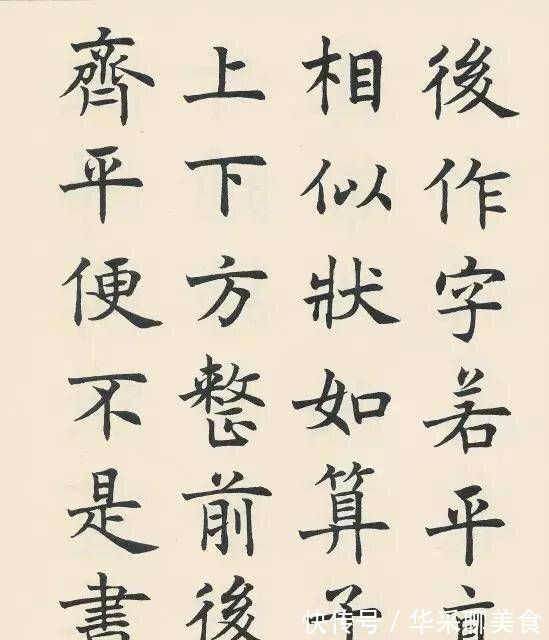 後作字若平
相似狀如算
上下方整前後
齊平便不是書
快传号／华采聊美食